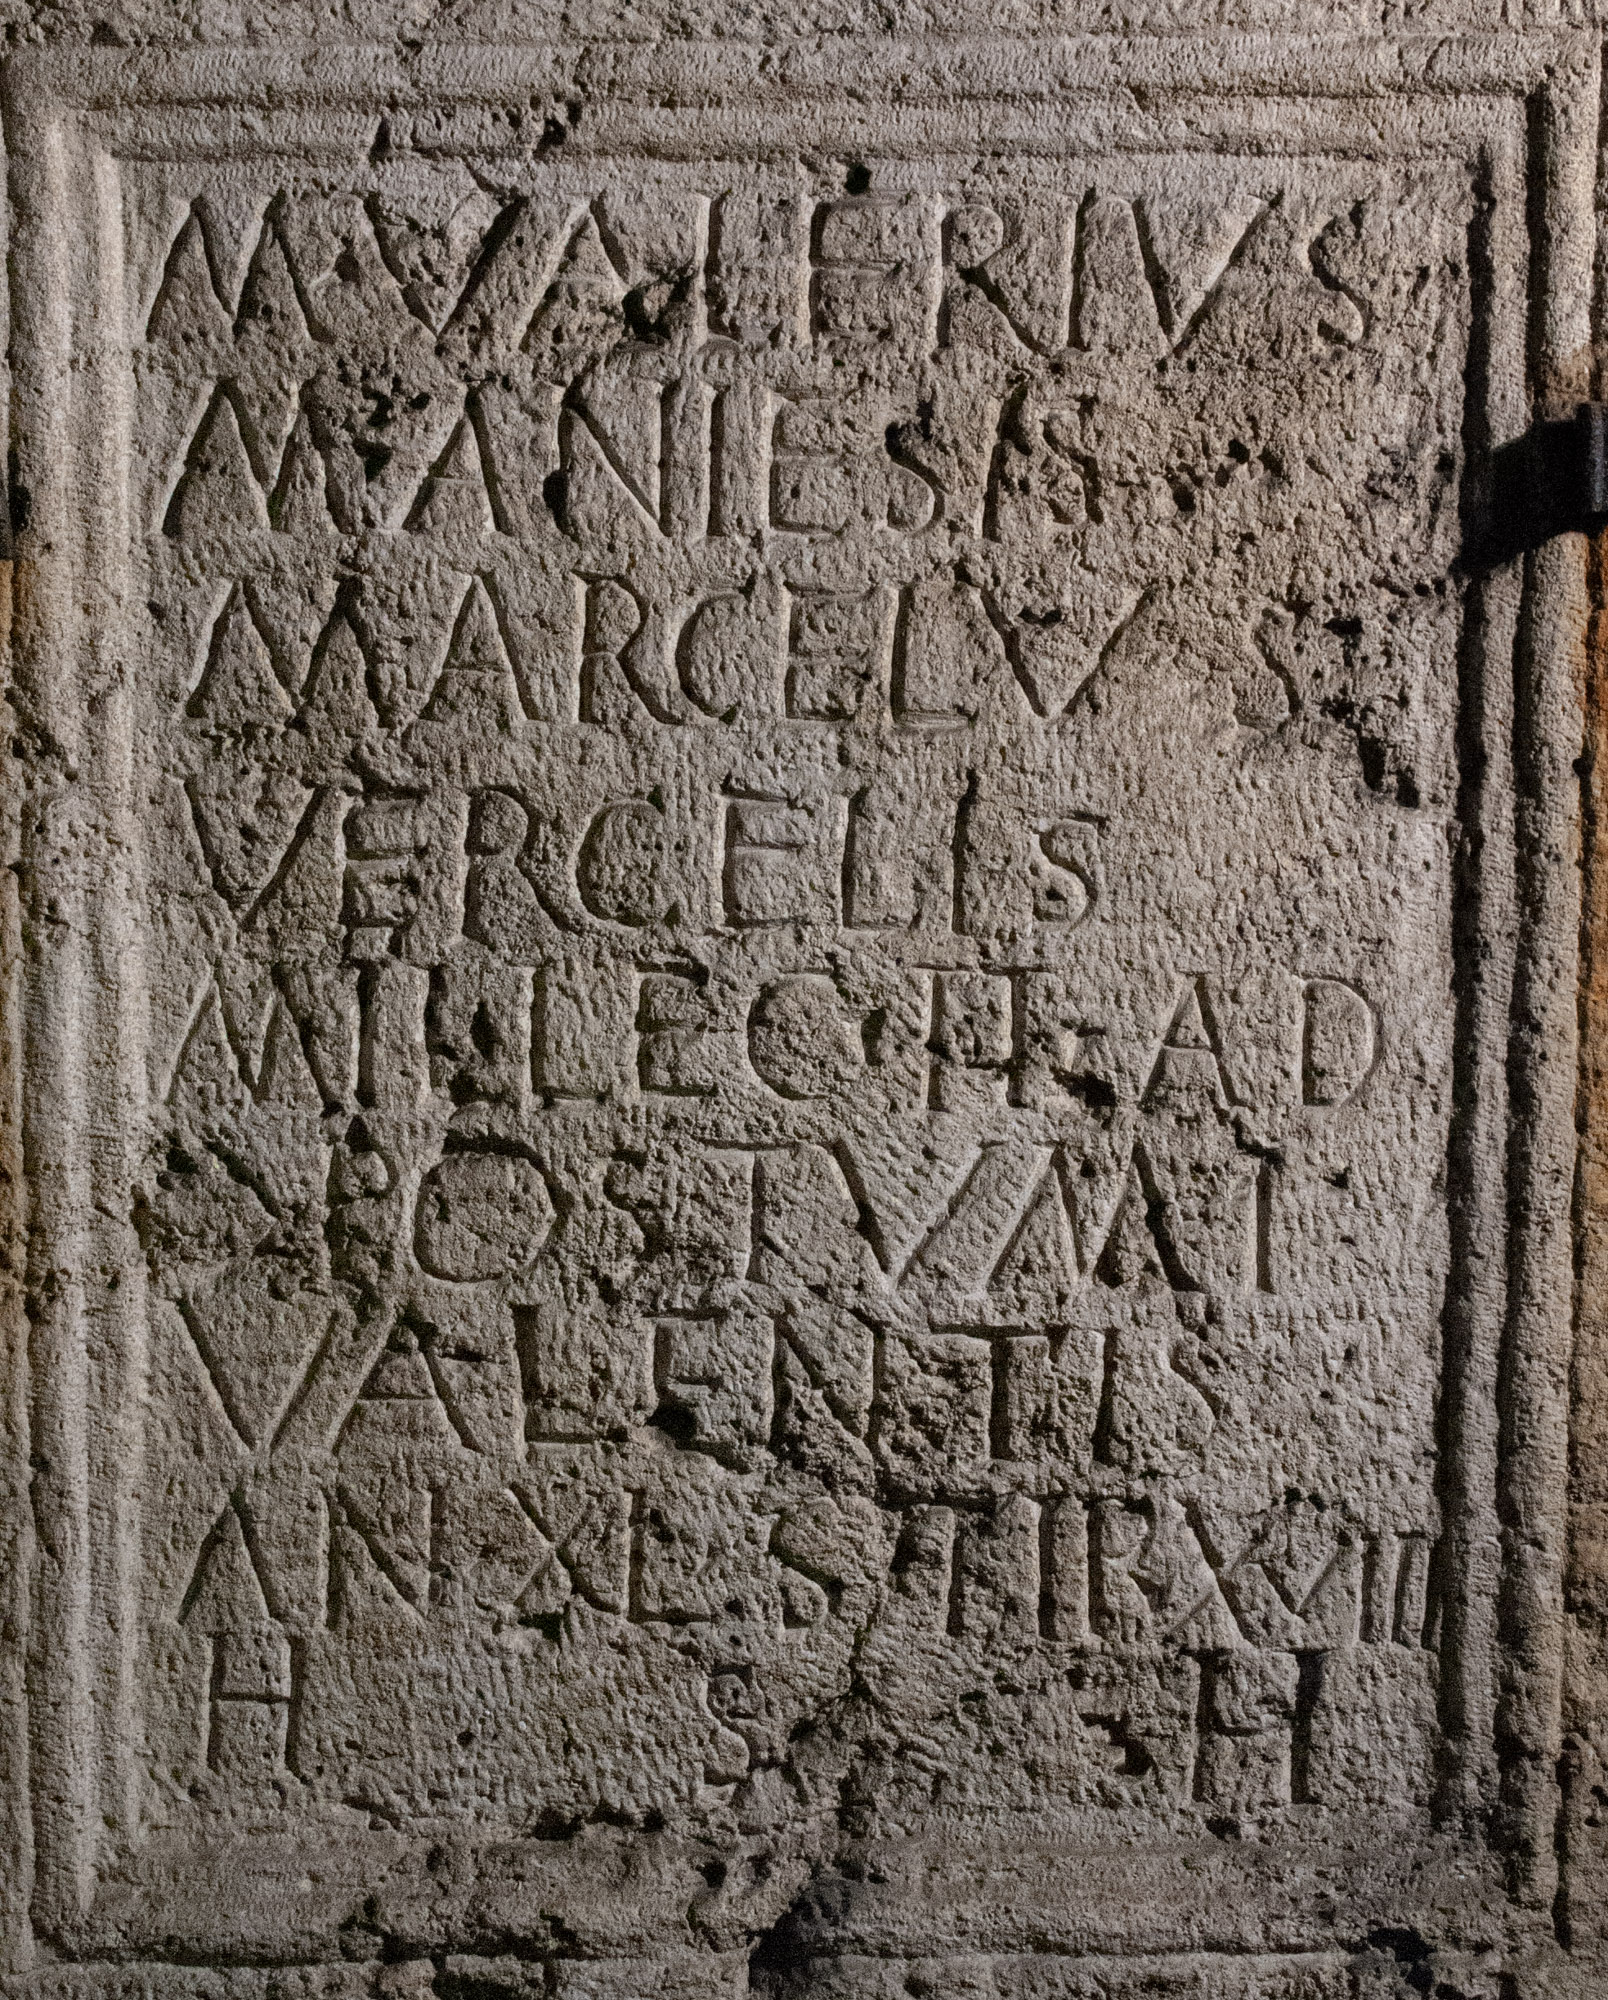 M·VALERIVS
MANIESIS
MARCELVS
VERCELIS
MIL·LEG·II·AD
POSTVMI
VALENTIS
AN·XL·STIPXVIII
H S H